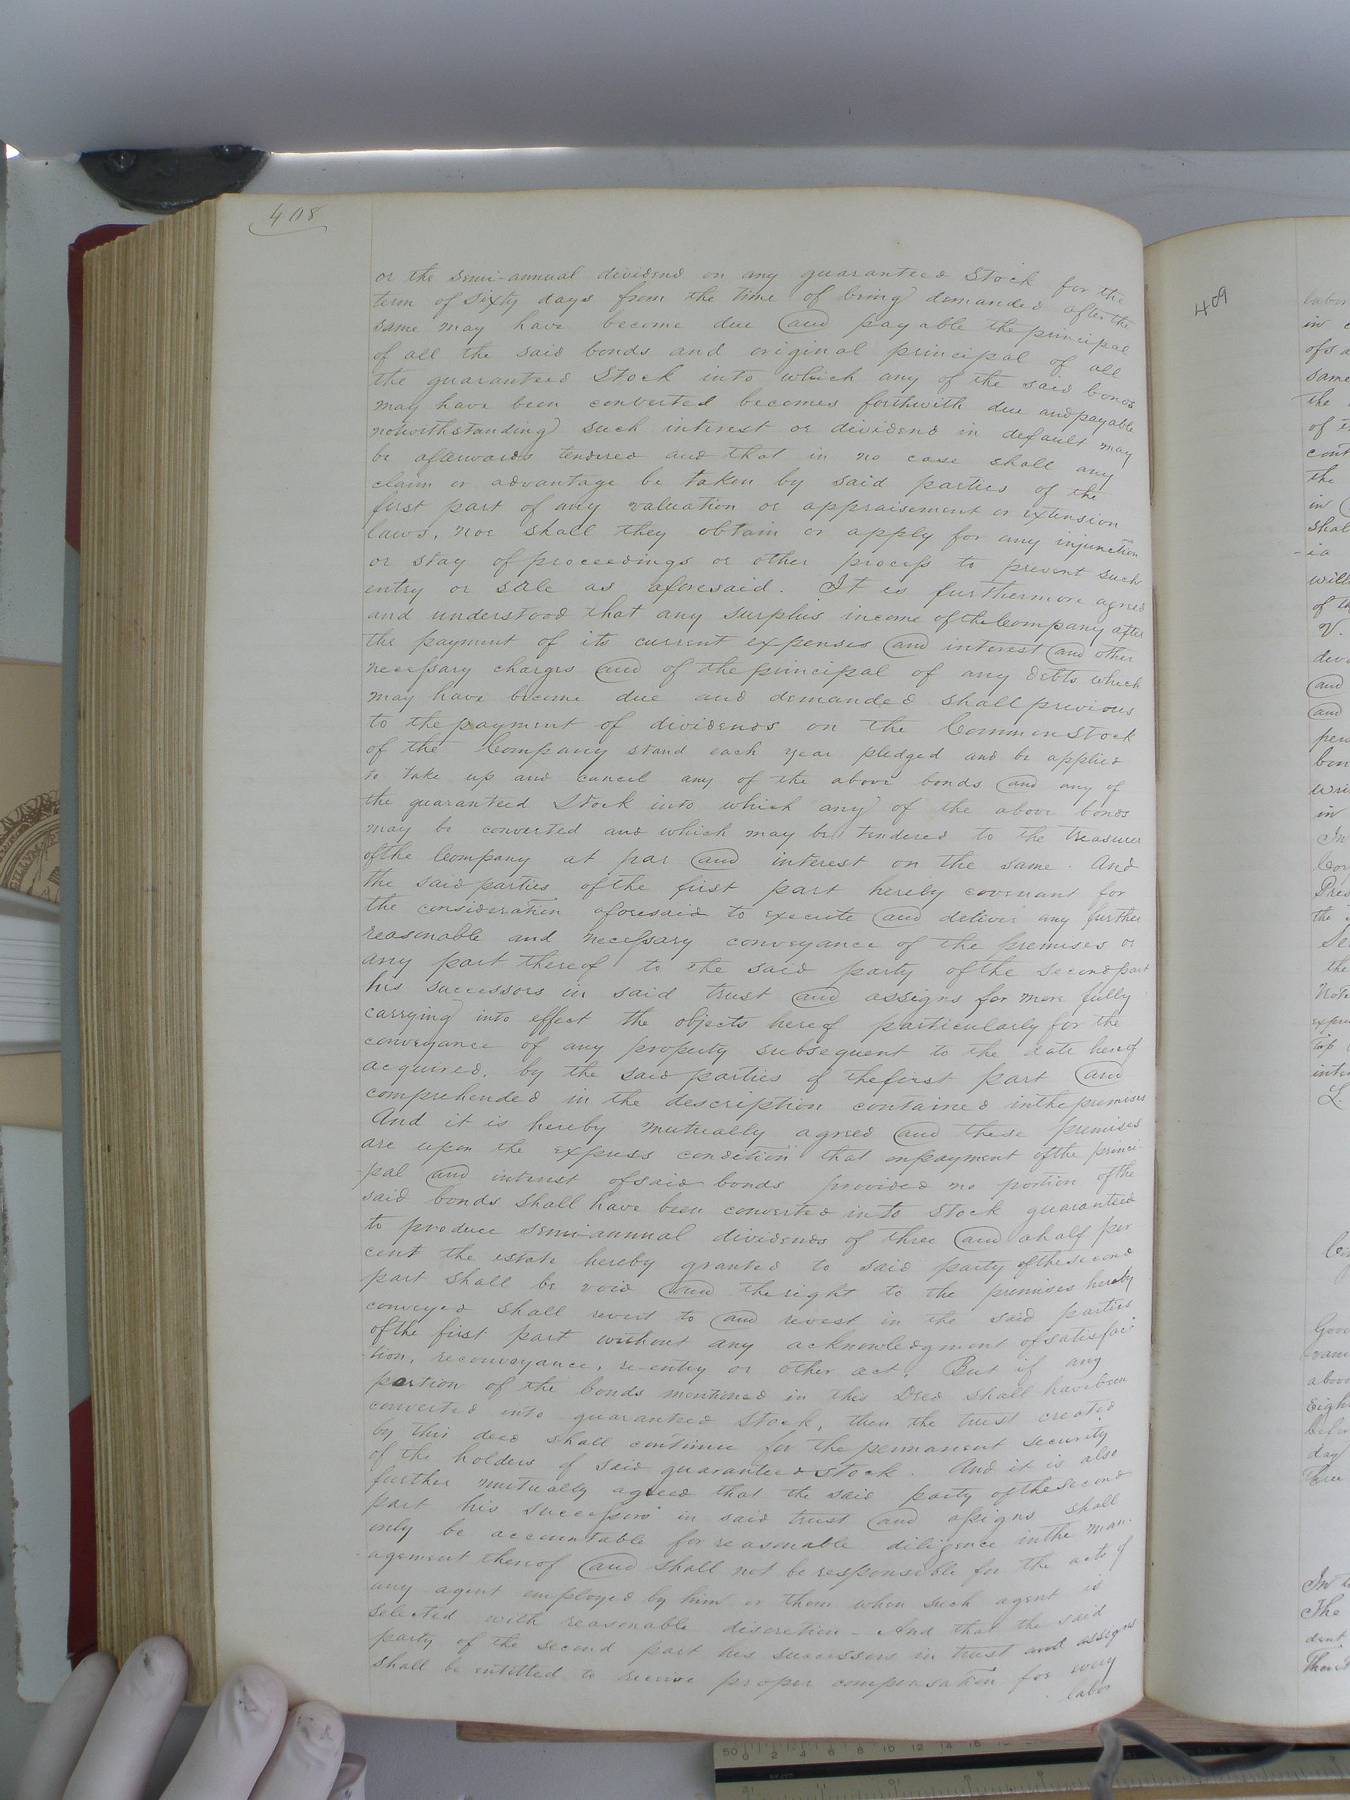 408
or the semi-annual dividend on any guaranteed Stock for the
term of sixty days from the time of being demanded after the
same may have become due and payable the principal
of all the said bonds and original principal of all
the guaranteed Stock into which any of the said bonds
may have been converted becomes forthwith due and payable
notwithstanding such interest or dividend in default may
be afterwards tendered and that in no case shall any
claim or advantage be taken by said parties of the
first part of any valuation or appraisement or extension
laws, nor shall they obtain or apply for any injunction
or stay of proceedings or other process to prevent such
entry or sale as aforesaid. It is furthermore agreed
and understood that any surplus income of the Company after
the payment of its current expenses and interest and other
necessary charges and of the principal of any debts which
may have become due and demanded shall previous
to the payment of dividends on the Common Stock
of the Company stand each year pledged and be applied
to take up and cancel any of the above bonds and any of
the guaranteed Stock into which any of the above bonds
may be converted and which may be tendered to the treasurer
of the Company at par and interest on the same. And
the said parties of the first part hereby covenant for
the consideration aforesaid to execute and deliver any further
reasonable and necessary conveyance of the premises or
any part thereof to the said party of the second part
his successors in said trust and assigns for more fully
carrying into effect the objects hereof particularly for the
conveyance of any property subsequent to the date hereof
acquired, by the said parties of the first part and
comprehended in the description contained in the premises
And it is hereby mutually agreed and these premises
are upon the express condition that on payment of the princi-
pal and interest of said bonds provided no portion of the
said bonds shall have been converted into Stock guaranteed
to produce semi-annual dividends of three and a half per
cent the estate hereby granted to said party of the second
part shall be void and the right to the premises hereby
conveyed shall revert to and revest in the said parties
of the first part without any acknowledgment of satisfac-
tion, reconveyance, re-entry or other act. But if any
portion of the bonds mentioned in this Deed shall have been
converted into guaranteed Stock, then the trust created
by this deed shall continue for the permanent security
of the holders of said guaranteed stock. And it is also
further mutually agreed that the said party of the second
part his successors in said trust and assigns shall
only be accountable for reasonable diligence in the man-
agement thereof and shall not be responsible for the acts of
any agent employed by him or them when such agent is
selected with reasonable discretion - And that the said
party of the second part his successors in trust and assigns
shall be entitled to receive proper compensation for every
labor
409
labor
in
same
the
of
the
in
will
of
V.
and
and
in
the
the
L.
above
day
Three
The